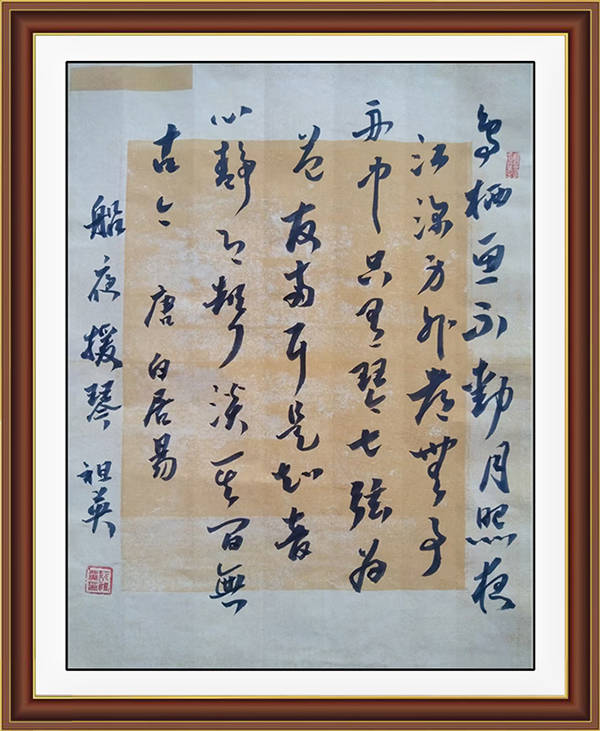 鳥栖魚不動月照夜
江深身外都無事
舟中只有琴七弦为
益友兩耳是知音
心靜即聲淡其間無
古今 唐 白居易
船夜援琴 祖英